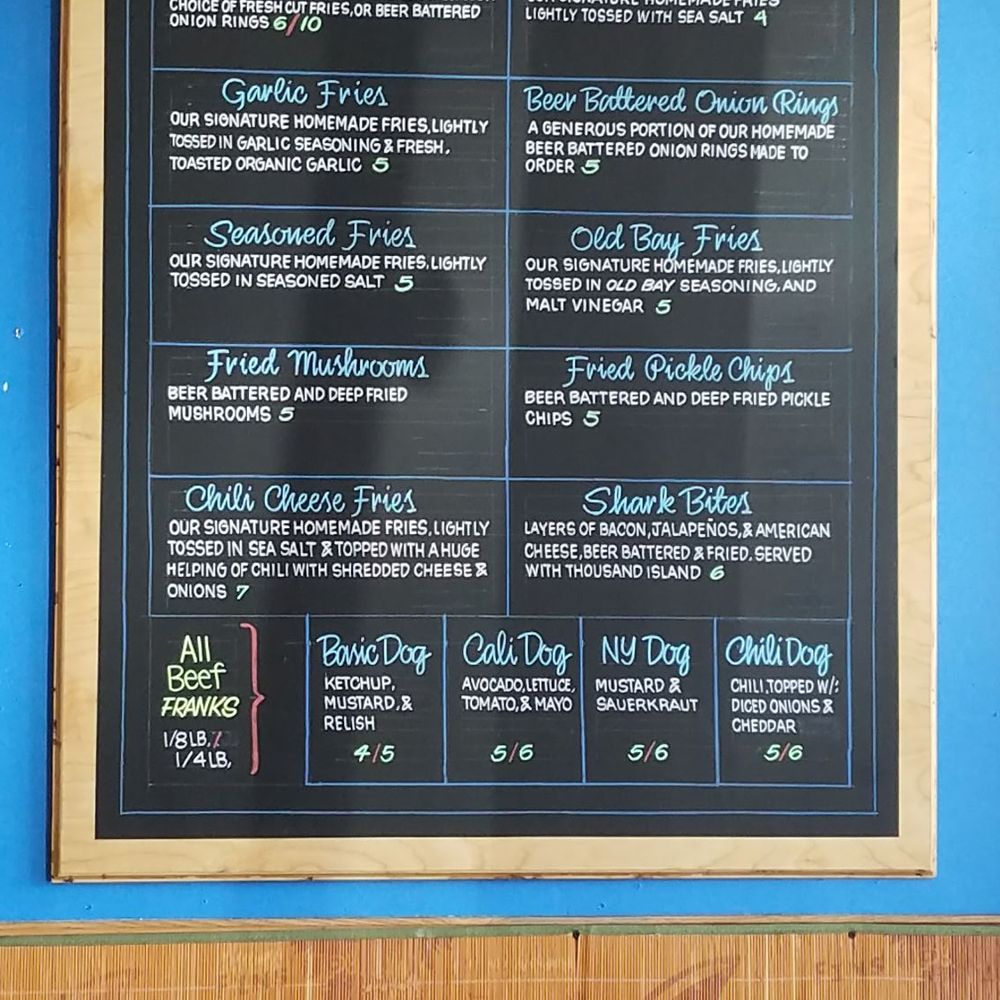 CHOICE OF FRESH CUT FRIES, OR BEER BATTERED
ONION RINGS 6/10
LIGHTLY TOSSED WITH SEA SALT 4
Garlic Fries
OUR SIGNATURE HOMEMADE FRIES, LIGHTLY
TOSSED IN GARLIC SEASONING & FRESH,
TOASTED ORGANIC GARLIC 5
Beer Battered Onion Rings
A GENEROUS PORTION OF OUR HOMEMADE
BEER BATTERED ONION RINGS MADE TO
ORDER 5
Seasoned Fries
OUR SIGNATURE HOMEMADE FRIES, LIGHTLY
TOSSED IN SEASONED SALT 5
Old Bay Fries
OUR SIGNATURE HOMEMADE FRIES, LIGHTLY
TOSSED IN OLD BAY SEASONING, AND
MALT VINEGAR 5
Fried Mushrooms
BEER BATTERED AND DEEP FRIED
MUSHROOMS 5
Fried Pickle Chips
BEER BATTERED AND DEEP FRIED PICKLE
CHIPS 5
Chili Cheese Fries
OUR SIGNATURE HOMEMADE FRIES, LIGHTLY
TOSSED IN SEA SALT & TOPPED WITH A HUGE
HELPING OF CHILI WITH SHREDDED CHEESE &
ONIONS 7
Shark Bites
LAYERS OF BACON, JALAPEÑOS, & AMERICAN
CHEESE, BEER BATTERED & FRIED. SERVED
WITH THOUSAND ISLAND 6
All
Beef
FRANKS
1/8 LB. /
1/4 LB,
Basic Dog
KETCHUP,
MUSTARD, &
RELISH
4/5
Cali Dog
AVOCADO, LETTUCE,
TOMATO, & MAYO
5/6
NY Dog
MUSTARD &
SAUERKRAUT
5/6
Chili Dog
CHILI, TOPPED W/:
DICED ONIONS &
CHEDDAR
5/6